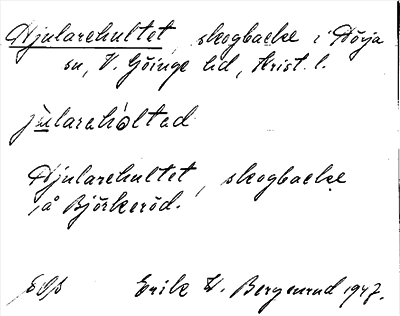 Hjularehultet, skogbacke i Nörja
sn, V. Göinge hd, Krist. l.
jùlarehóltad
Hjularehultet, skogbacke
på Björkeröd.
Erik W. Bergenrud 1947.